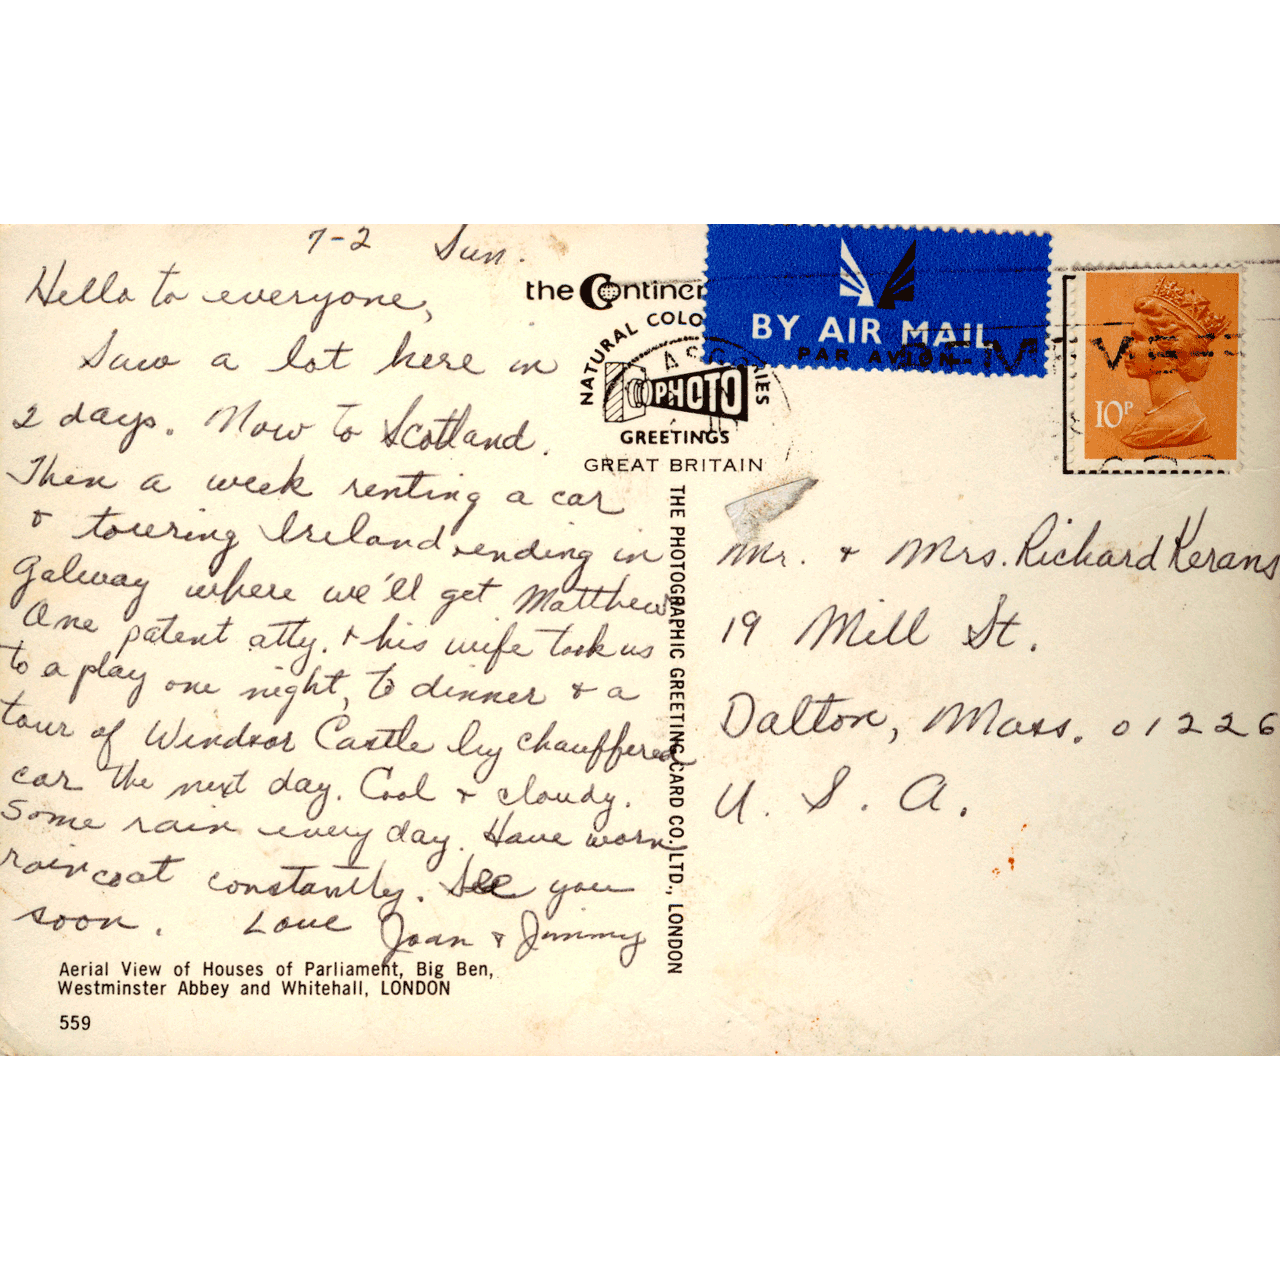 7-2 Sun.
Hello to everyone,
Saw a lot here in
2 days. Now to Scotland.
Then a week renting a car
& touring Ireland, ending in
Galway where we'll get Matthew.
One patent atty. & his wife took us
to a play one night, to dinner & a
tour of Windsor Castle by chauffered
car the next day. Cool & cloudy.
Some rain every day. Have worn
raincoat constantly. See you
soon. Love Joan & Jimmy
Aerial View of Houses of Parliament, Big Ben,
Westminster Abbey and Whitehall, LONDON
559
the Continen
NATURAL COLO
PHOTO
GREETINGS
GREAT BRITAIN
THE PHOTOGRAPHIC GREETING CARD CO. LTD., LONDON
BY AIR MAIL
PAR AVION
10P
Mr. & Mrs. Richard Kerans
19 Mill St.
Dalton, Mass. 01226
U. S. A.